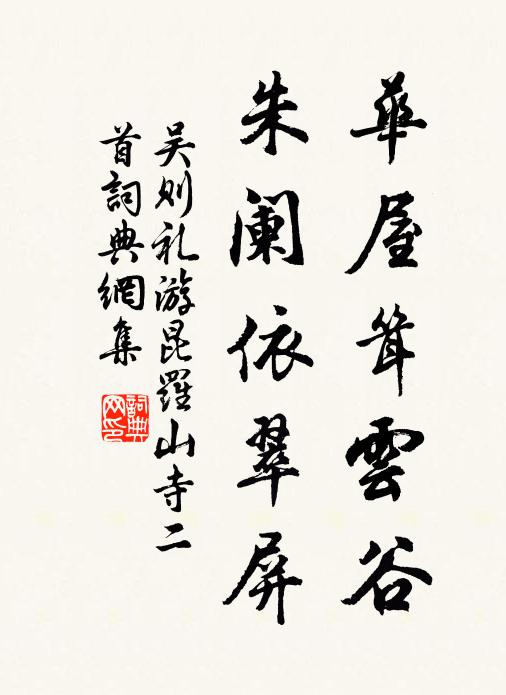 華屋茸雲谷
朱阑依翠屏
吴则礼游昆羅山寺二
首詞典網集
詞典
网印